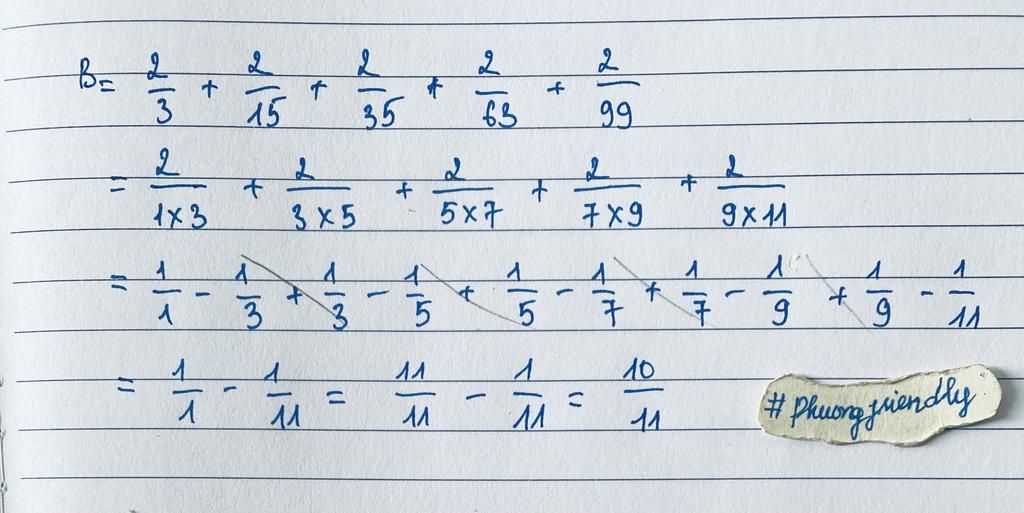 B = 2/3 + 2/15 + 2/35 + 2/63 + 2/99
= 2/1×3 + 2/3×5 + 2/5×7 + 2/7×9 + 2/9×11
= 1/1 - 1/3 + 1/3 - 1/5 + 1/5 - 1/7 + 1/7 - 1/9 + 1/9 - 1/11
= 1/1 - 1/11 = 11/11 - 1/11 = 10/11
#phuongfriendly